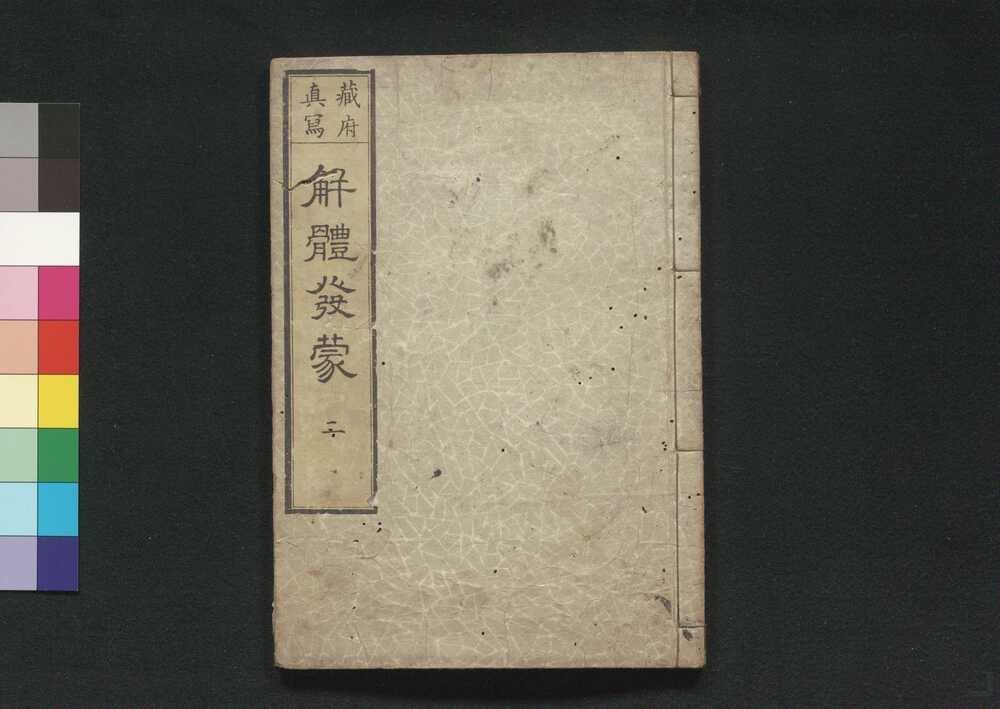 藏府
真寫
解體發蒙 二